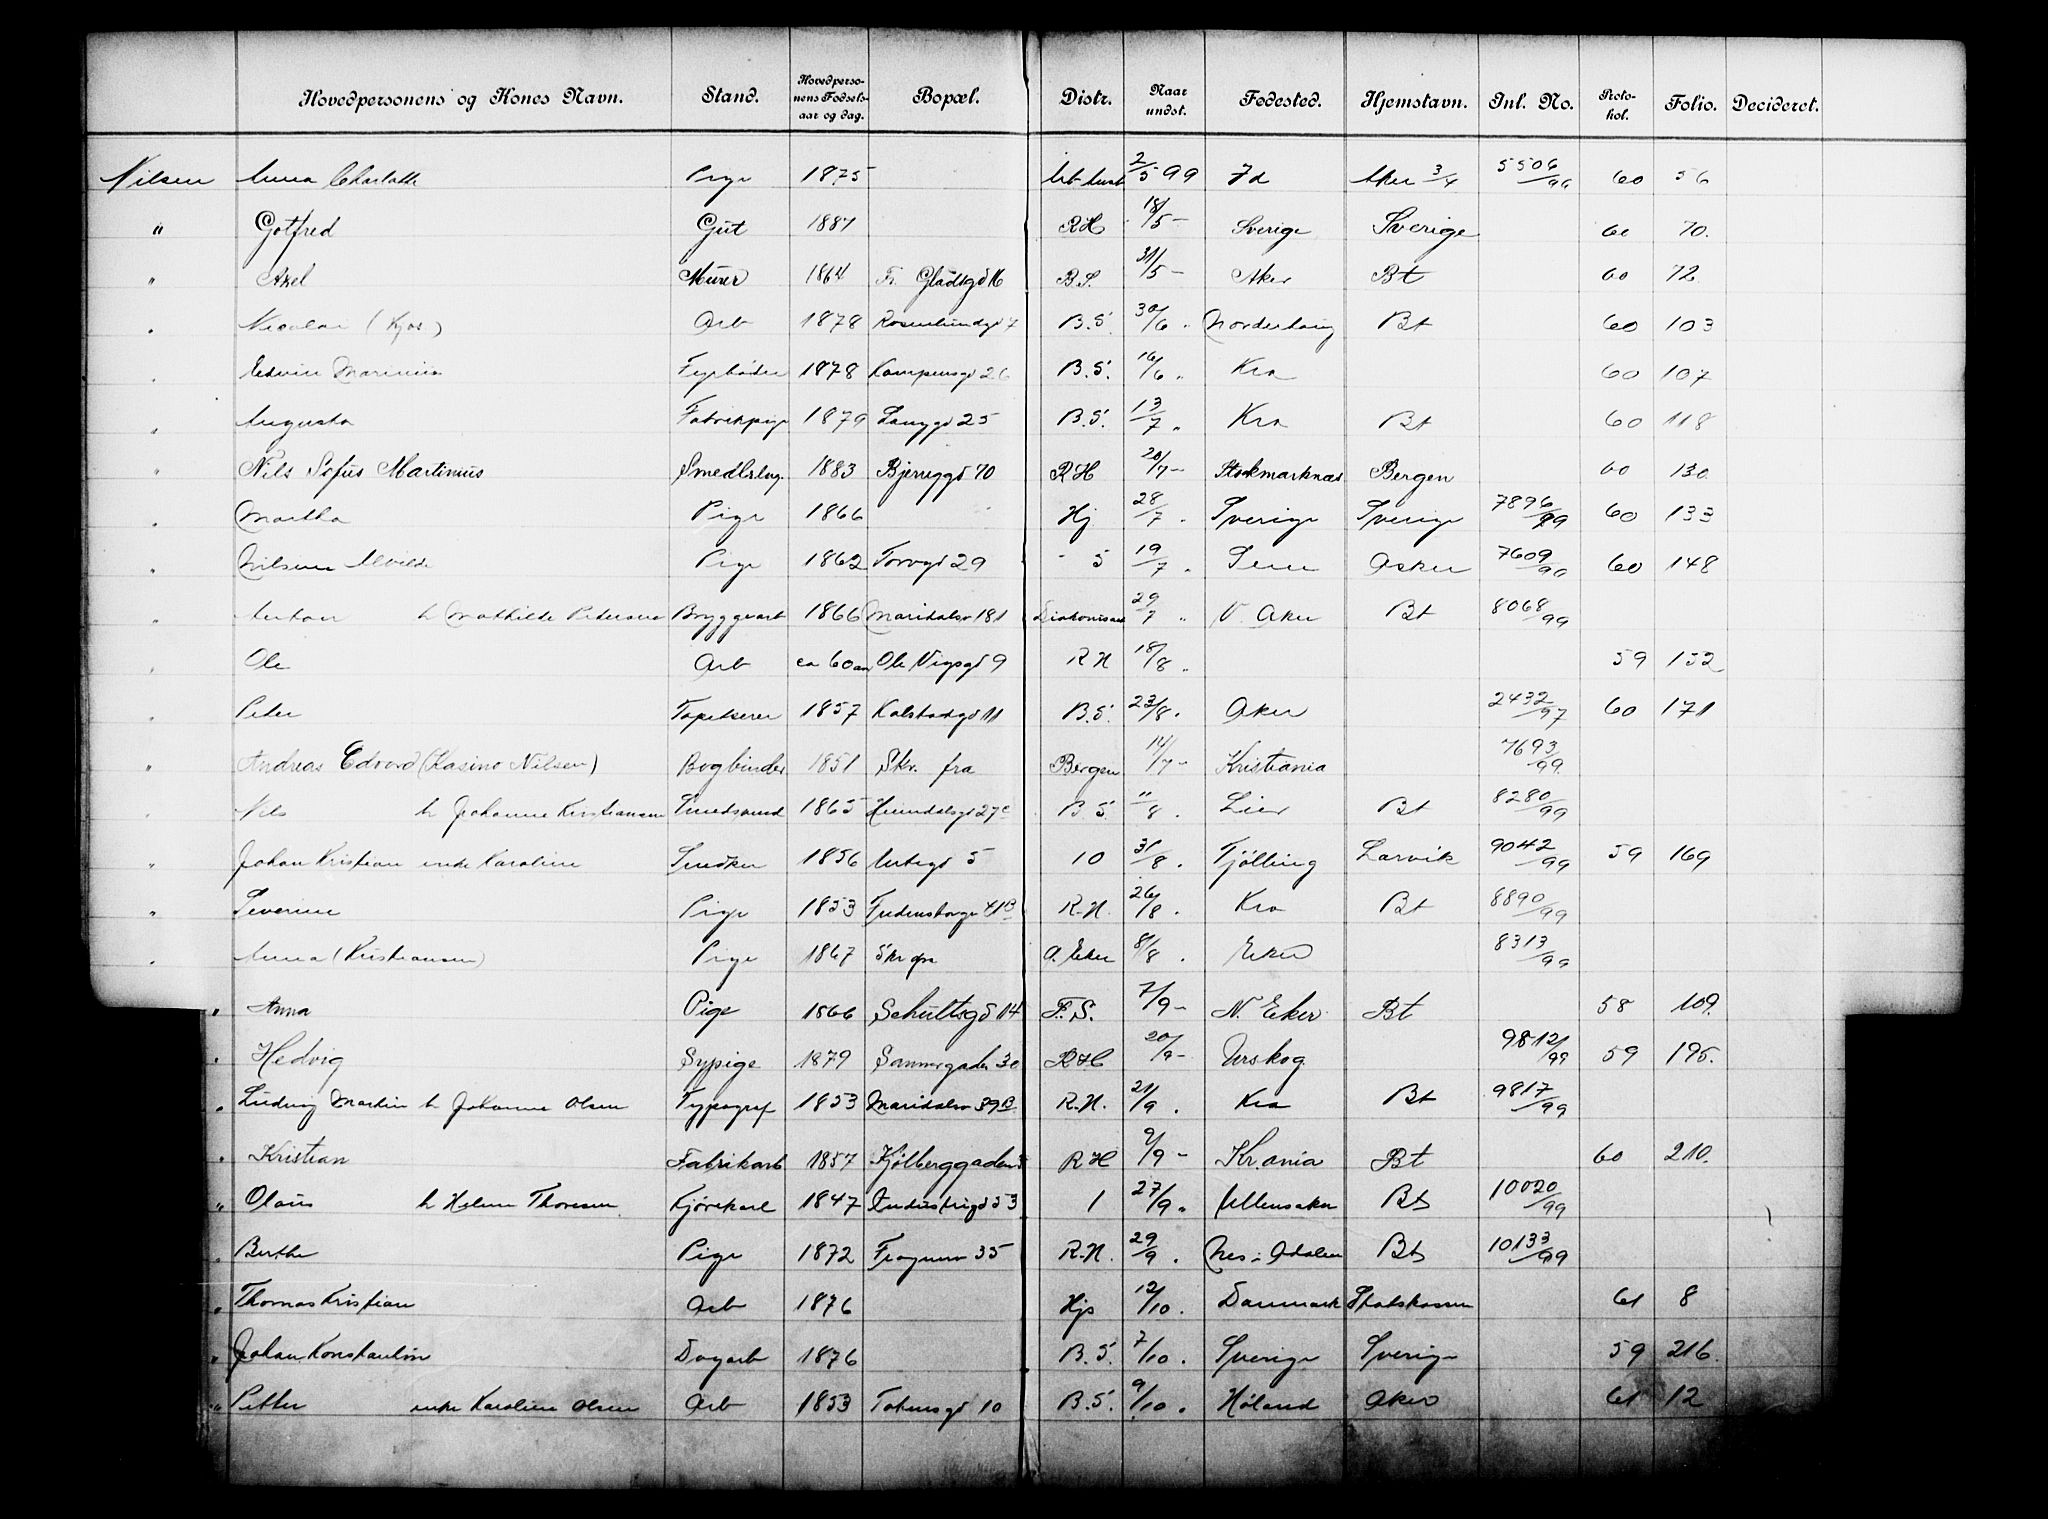 Hovedpersonens og Kones Navn. Stand. Hovedpersonens Fødselsaar og dag. Bopæl. Distr. Naar undst. Fødested. Hjemstavn. Inl. No. Protokol. Folio. Decideret.
Nilsen Anna Charlotte Pige 1875 2/5 99 Id Aker 3/4 5506/96 60 56
" Gotfred Gut 1887 RH 18/5 - Sverige Sverige 60 70.
" Axel Murer 1864 Fr. Gladsgd 16 B.S. 31/5 - Aker Bt 60 72
" Nicolai (Kjos) Arb 1878 Rosenlundgd 7 B.S. 30/6 " Norderhoug Bt 60 103
" Edvin Marinius Fyrbøder 1878 Kampensgd 26 B.S. 16/6 " Kra 60 107
" Augusta Fabrikpige 1879 Langgd 25 B.S. 13/7 " Kra Bt 60 118
" Nils Sofus Martinius Smedlærling 1883 Bjerreggd 70 RH 20/7 - Stokmarknæs Bergen 60 130
" Martha Pige 1866 Hj 28/7 " Sverige Sverige 7896/99 60 133
" Nilsine Alvilde Pige 1862 Torvgd 29 5 19/7 " Asker 7609/90 60 148
" Anton h Mathilde Petersen Bryggearb 1866 Maridalsv 181 Diakonissen 29/7 " V. Aker Bt 8068/99
" Ole Arb ca 60 aar Ole Vigsgd 9 R.H 18/8 " 59 132
" Peter Tapetserer 1857 Kalstadgd 11 B.S. 23/8 " Aker 2432/97 60 171
" Andreas Edvard (Kasino Nilsen) Bogbinder 1851 Skr. fra Bergen 14/7 - Kristiania 7693/99
" Nils h Johanne Kristiansen Smedsvend 1865 Heimdalsgd 27c B S. "/8 " Lier Bt 8280/99
" Johan Kristian enke Karoline Snedker 1856 5 10 31/8 " Tjølling Larvik 9042/99 59 169
" Severine Pige 1853 Fredensborgv 41B R.H. 26/8 " Kra Bt 8890/99
" Anna (Kristiansen) Pige 1867 Skr fra Ø. Eker 8/8 " Eker 8313/99
" Anna Pige 1866 Schultsgd 14 F.S. 7/9 - N. Eker Bt 58 109.
" Hedvig Sypige 1879 Sannergaden 30 RH 20/9 - Urskog 9812/99 59 195.
" Ludvig Martin h Johanne Olsen Typograf 1853 Maridalsv 39B R.H. 21/9 " Kra Bt 9817/99
" Kristian Fabrikarb 1857 Kjølberggaden 5 RH 9/9 - Kr.ania Bt 60 210.
" Olaus h Helene Thoresen Kjørekarl 1847 Industrigd 53 1 27/9 " Ullensaker Bt 10020/99
" Berthe Pige 1872 Frognerv 35 R.H. 29/9 " Nes i Odalen Bt 10133/99
" Thomas Kristian Arb 1876 Hjs 12/10 " Danmark Statskassen 61 8
" Johan Konstantin Dagarb 1876 B.S. 7/10 " Sverige Sverige 59 216
" Petter enke Karoline Olsen Arb 1853 Toftensgd 10 B.S. 9/10 " Høland Aker 61 12